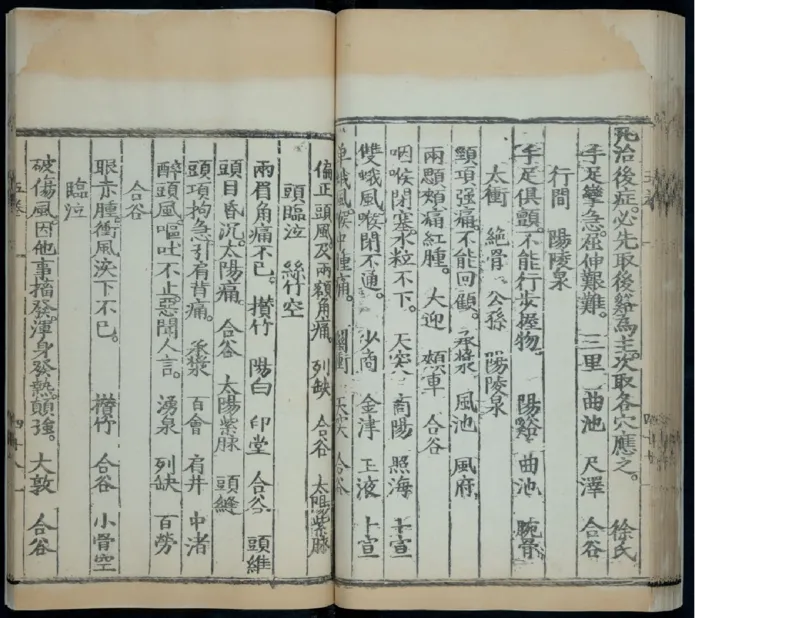 死治後症。必先取後谿爲主。次取各穴應之。 徐氏
手足攣急。屈伸艱難。 三里 曲池 尺澤 合谷
行間 陽陵泉
手足俱顫。不能行步握物。 陽谿 曲池 腕骨
太衝 絶骨 公孫 陽陵泉
頸項强痛。不能回顧。 承漿 風池 風府
兩顋頰痛紅腫。 大迎 頰車 合谷
咽喉閉塞。水粒不下。 天突 商陽 照海 十宣
雙蛾風。喉閉不通。 少商 金津 玉液 十宣
單蛾風。喉中腫痛。 關衝 天突 合谷
偏正頭風。及兩額角痛。 列缺 合谷 太陽紫脉
頭臨泣 絲竹空
兩眉角痛不已。 攅竹 陽白 印堂 合谷 頭維
頭目昏沉。太陽痛。 合谷 太陽紫脉 頭縫
頭項拘急。引肩背痛。 承漿 百會 肩井 中渚
醉頭風。嘔吐不止。惡聞人言。 湧泉 列缺 百勞
合谷
眼赤腫。衝風淚下不已。 攅竹 合谷 小骨空
臨泣
破傷風。因他事搐發。渾身發熱。顛强。 大敦 合谷
五卷